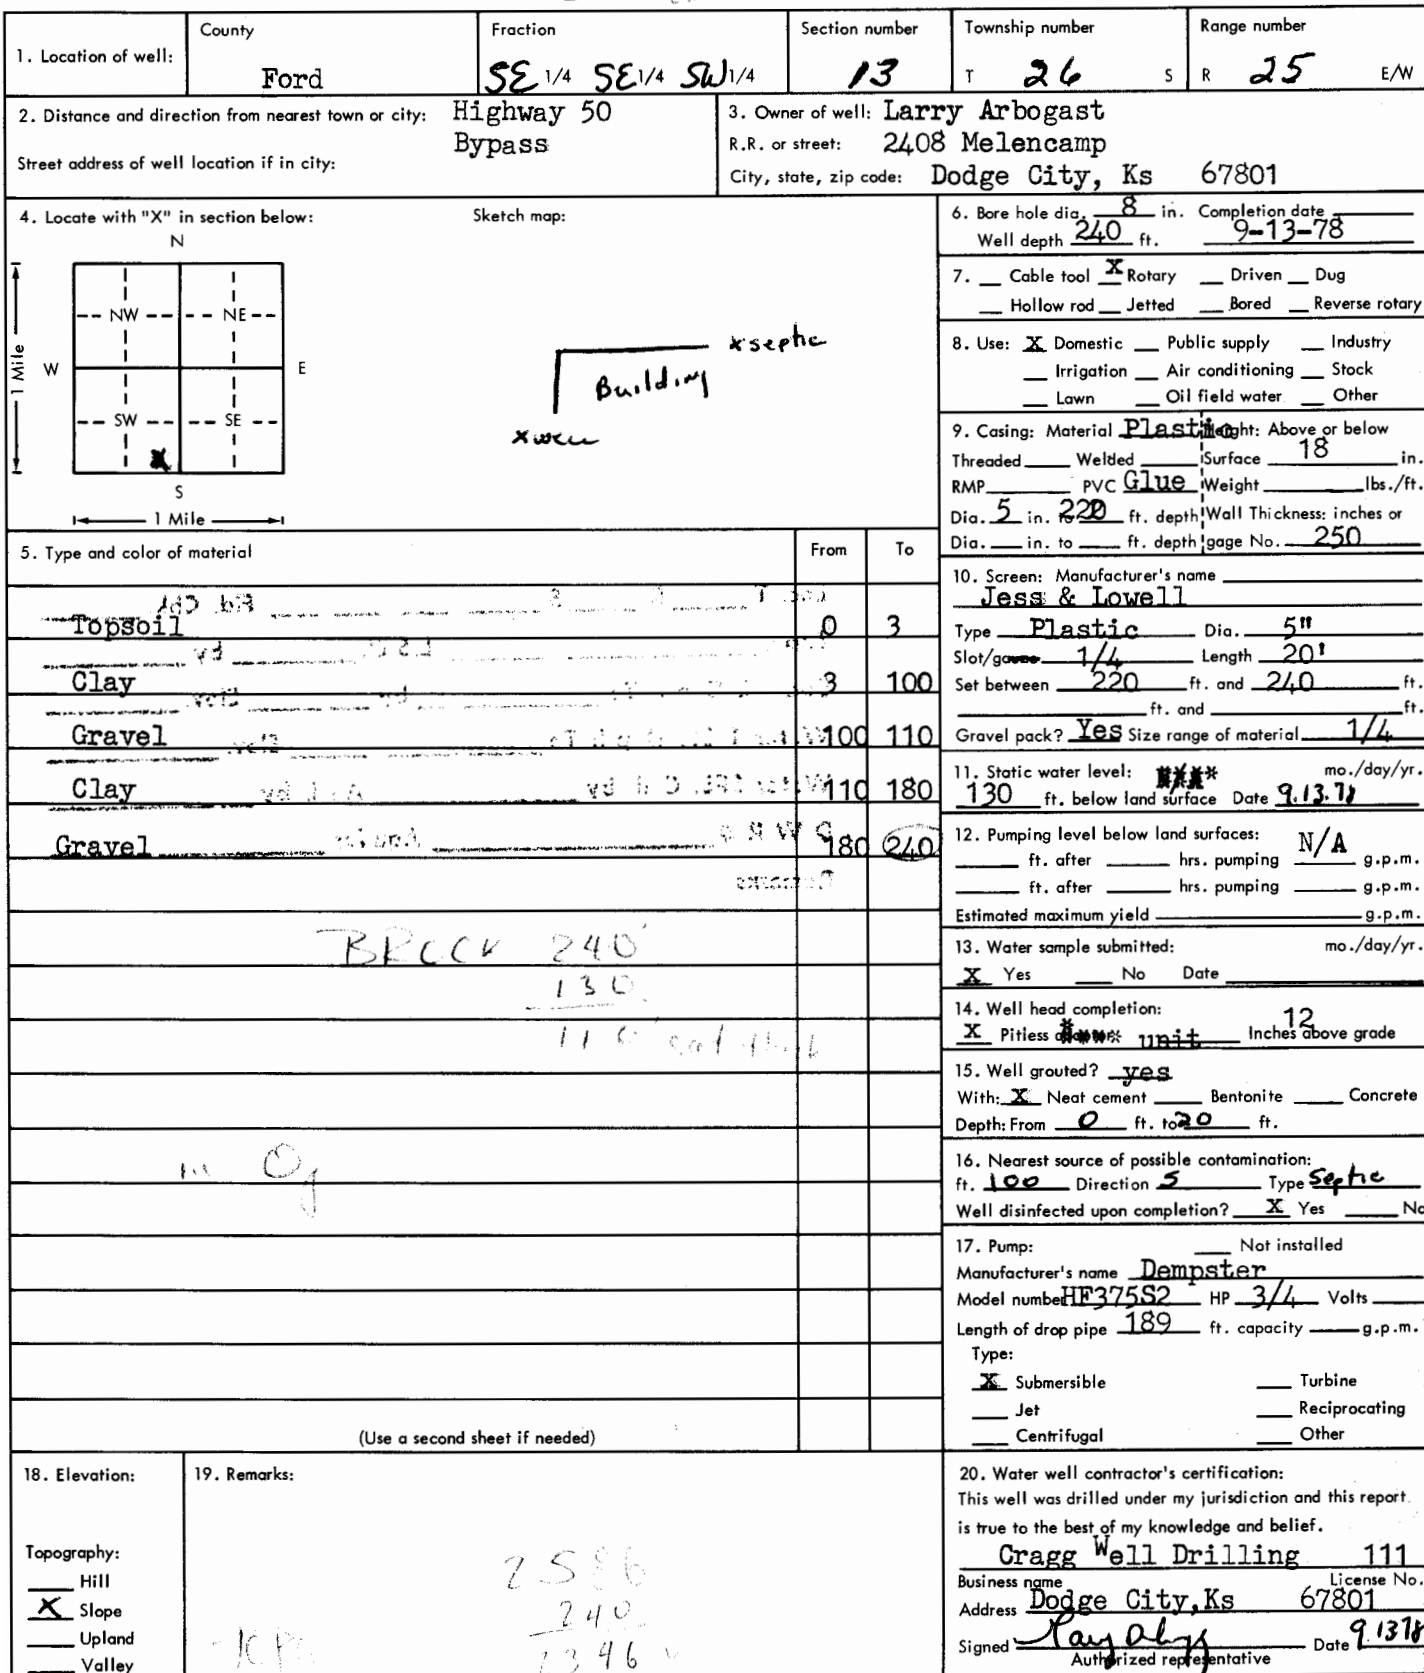 1. Location of well: County Fraction Section number Township number Range number
Ford SE 1/4 SE 1/4 SW 1/4 13 T 26 S R 25 E/W
2. Distance and direction from nearest town or city: Highway 50
Bypass
Street address of well location if in city:
3. Owner of well: Larry Arbogast
R.R. or street: 2408 Melencamp
City, state, zip code: Dodge City, Ks 67801
4. Locate with "X" in section below: Sketch map:
N
NW NE
W E
SW SE
X
S
1 Mile
1 Mile
x septic
Building
x well
5. Type and color of material From To
Topsoil 0 3
Clay 3 100
Gravel 100 110
Clay 110 180
Gravel 180 240
BROCK 240'
130
110' sat thck
in Og
(Use a second sheet if needed)
6. Bore hole dia. 8 in. Completion date
Well depth 240 ft. 9-13-78
7. Cable tool X Rotary Driven Dug
Hollow rod Jetted Bored Reverse rotary
8. Use: X Domestic Public supply Industry
Irrigation Air conditioning Stock
Lawn Oil field water Other
9. Casing: Material Plastic Height: Above or below
Threaded Welded Surface 18 in.
RMP PVC Glue Weight lbs./ft.
Dia. 5 in. to 220 ft. depth Wall Thickness: inches or
Dia. in. to ft. depth gage No. 250
10. Screen: Manufacturer's name
Jess & Lowell
Type Plastic Dia. 5"
Slot/gauze 1/4 Length 20'
Set between 220 ft. and 240 ft.
ft. and ft.
Gravel pack? Yes Size range of material 1/4
11. Static water level: mo./day/yr.
130 ft. below land surface Date 9.13.78
12. Pumping level below land surfaces: N/A
ft. after hrs. pumping g.p.m.
ft. after hrs. pumping g.p.m.
Estimated maximum yield g.p.m.
13. Water sample submitted: mo./day/yr.
X Yes No Date
14. Well head completion:
X Pitless unit 12 Inches above grade
15. Well grouted? yes
With: X Neat cement Bentonite Concrete
Depth: From 0 ft. to 20 ft.
16. Nearest source of possible contamination:
ft. 100 Direction S Type Septic
Well disinfected upon completion? X Yes No
17. Pump: Not installed
Manufacturer's name Dempster
Model number HF375S2 HP 3/4 Volts
Length of drop pipe 189 ft. capacity g.p.m.
Type:
X Submersible Turbine
Jet Reciprocating
Centrifugal Other
18. Elevation:
Topography:
Hill
X Slope
Upland
Valley
19. Remarks:
2586
240
2346
20. Water well contractor's certification:
This well was drilled under my jurisdiction and this report
is true to the best of my knowledge and belief.
Cragg Well Drilling 111
Business name License No.
Address Dodge City, Ks 67801
Signed Date 9.13 78
Authorized representative